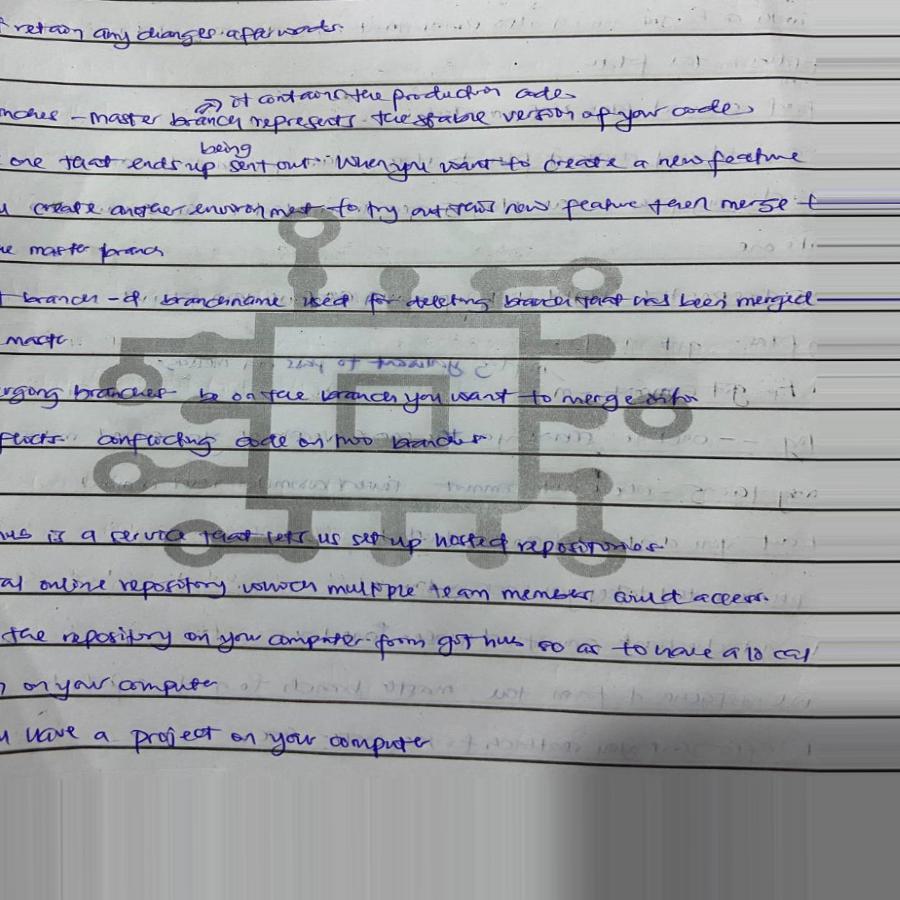 retain any changes afterwards.
it contains the production code
nches - master branch represents the stable version of your code
being
one that ends up sent out. When you want to create a new feature
create another environment to try out this new feature then merge t
master branch
branch -d branchname used for deleting branch that has been merged
branches be on the branch you want to merge
conflicting code on two branches
hub is a service that lets us set up hosted repositories
al online repository which multiple team member access.
the repository on your computer from git hub so as to have a local
on your computer
have a project on your computer